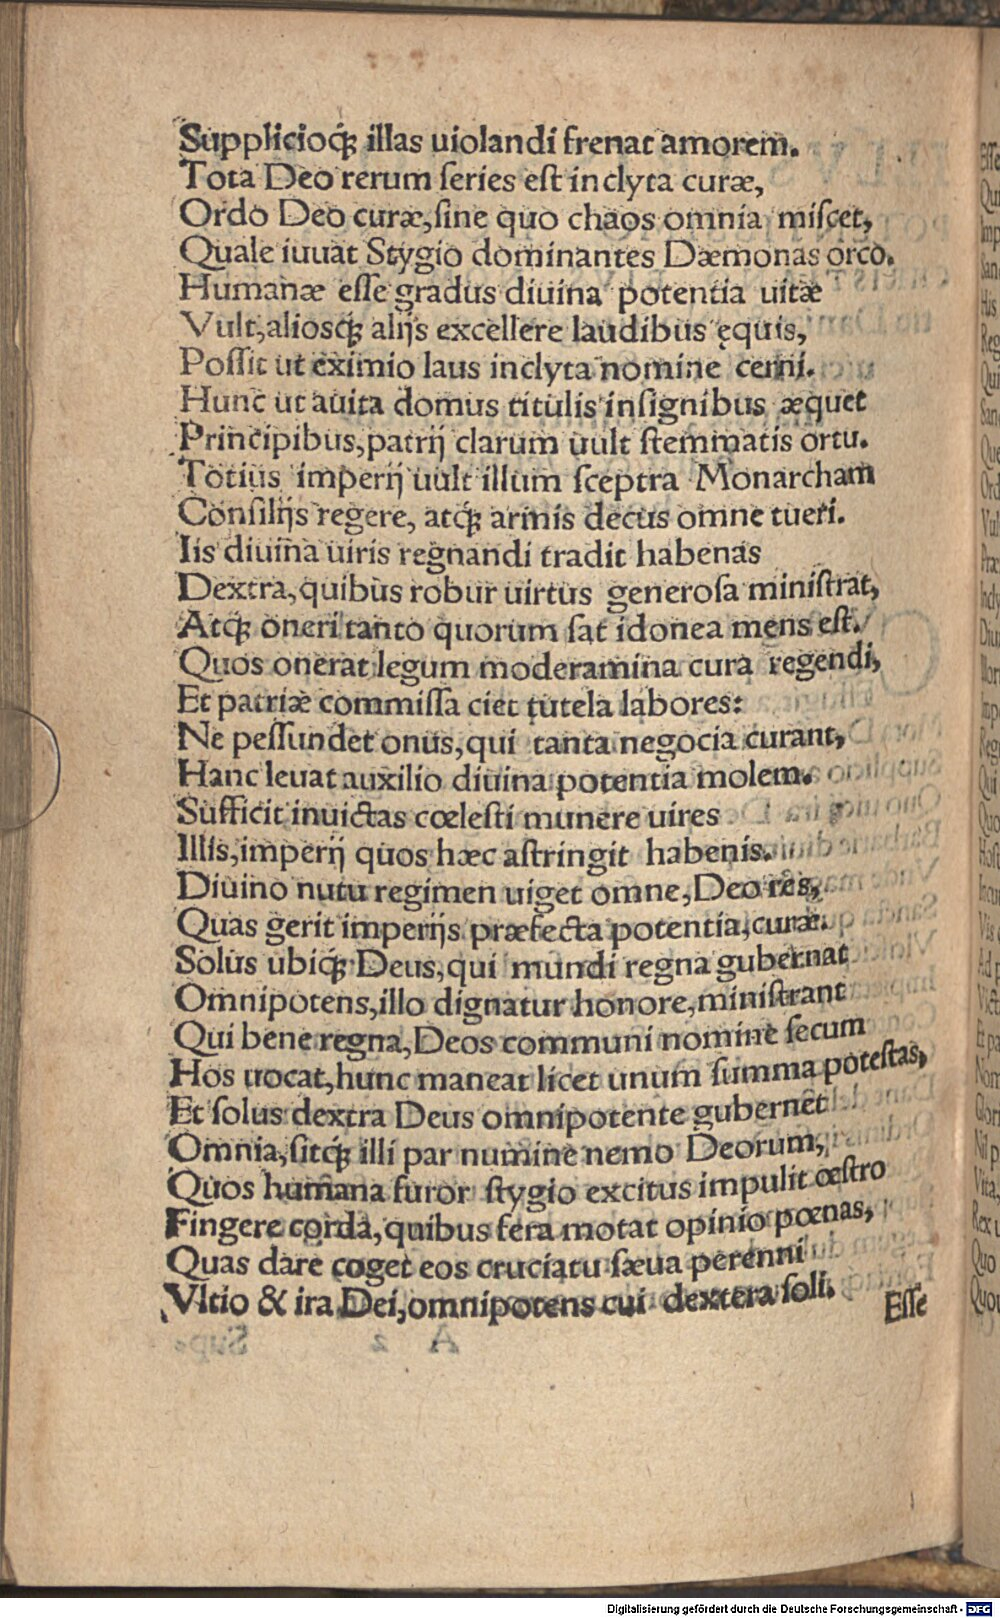 Supplicioq́; illas uiolandi frenat amorem.
Tota Deo rerum ſeries eſt inclyta curæ,
Ordo Deo curæ, ſine quo chaos omnia miſcet,
Quale iuuat Stygio dominantes Dæmonas orco.
Humanæ eſſe gradus diuina potentia uitæ
Vult, aliosq́; alijs excellere laudibus ęquis,
Poſſit ut eximio laus inclyta nomine cerni.
Hunc ut auita domus titulis inſignibus æquet
Principibus, patrij clarum uult ſtemmatis ortu.
Totius imperij uult illum ſceptra Monarcham
Conſilijs regere, atq́; armis decus omne tueri.
Iis diuina uiris regnandi tradit habenas
Dextra, quibus robur uirtus generoſa miniſtrat,
Atq́; oneri tanto quorum ſat idonea mens eſt.
Quos onerat legum moderamina cura regendi,
Et patriæ commiſſa ciet tutela labores:
Ne peſſundet onus, qui tanta negocia curant,
Hanc leuat auxilio diuina potentia molem.
Sufficit inuictas cœleſti munere uires
Illis, imperij quos hæc aſtringit habenis.
Diuino nutu regimen uiget omne, Deo res,
Quas gerit imperijs præfecta potentia, curæ.
Solus ubiq́; Deus, qui mundi regna gubernat
Omnipotens, illo dignatur honore, miniſtrant
Qui bene regna, Deos communi nomine ſecum
Hos uocat, hunc maneat licet unum ſumma poteſtas,
Et ſolus dextra Deus omnipotente gubernet
Omnia, ſitq́; illi par numine nemo Deorum,
Quos humana furor ſtygio excitus impulit œſtro
Fingere corda, quibus fera motat opinio pœnas,
Quas dare coget eos cruciatu ſæua perenni
Vltio & ira Dei, omnipotens cui dextera ſoli.
Eſſe
Digitalisierung gefördert durch die Deutsche Forschungsgemeinschaft - DFG